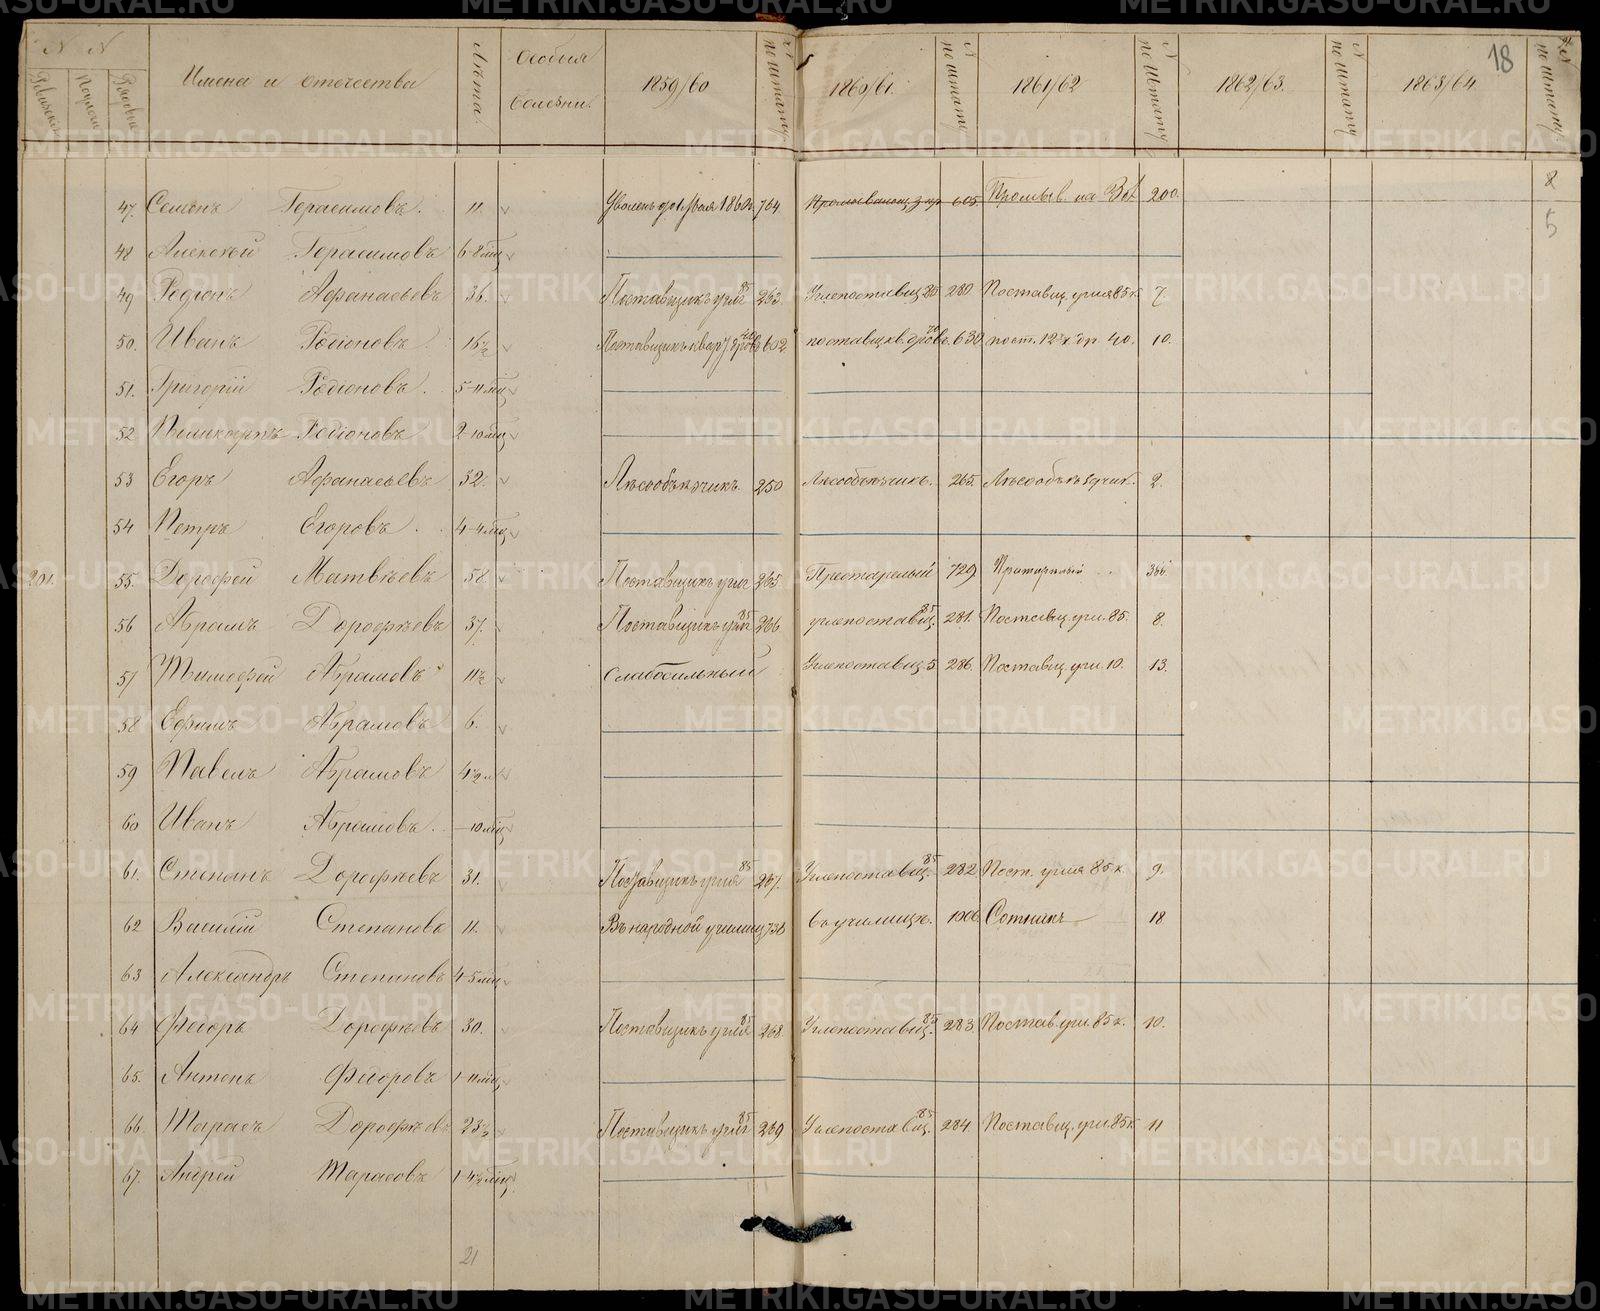 N N Имена и отечества Лѣта. Особыя болезни. 1859/60 N по штату 1860/61. N по штату 1861/62 N по штату 1862/63. N по штату 1863/64. N по штату 18
Ревизскіе
8
47. Семенъ Герасимовъ. 11. 764 605 Промыв. на 200.
5
48 Алексѣй Герасимовъ 6-8 міц
49 Родіонъ Афанасьевъ 36. Поставщикъ угля 85 263. Углепоставщ. 85 280 Поставщ. угля 85 к. 7.
50. Иванъ Родіоновъ. 16½ 602 поставщ. кв. дровъ. 70 630 пост. 40. 10.
51. Григорій Родіоновъ. 5-11 міц
52 Поликарпъ Родіоновъ 2-10 міц
53 Егоръ Афанасьевъ 32. Лѣсообъѣзчикъ. 250 Лѣсообъѣзчикъ. 265. Лѣсообъѣздчик. 2.
54 Петръ Егоровъ. 4-4 міц
201. 55. Дорофей Матвѣевъ 58. Поставщикъ угля 265. Престарелый 729 366.
56 Абрамъ Дорофѣевъ 37. Поставщикъ угля 85 266 углепоставщ. 85 281. Поставщ. угл. 85. 8.
57 Тимофей Абрамовъ 11½ Слабосильный Углепоставщ. 5 286. Поставщ. угл. 10. 13.
58 Ефимъ Абрамовъ 6.
59 Павелъ Абрамовъ 4½
60 Иванъ Абрамовъ. -10 міц
61. Степанъ Дорофѣевъ 31. Поставщикъ угля 85 267. Углепоставщ. 85 282 Пост. угля 85 к. 9.
62 Василій Степановъ 11. Въ народной училищ 738 въ училищѣ. 1006 Сотникъ 18
63 Александръ Степановъ 4-5 міц
64 Федоръ Дорофѣевъ 30. Поставщикъ угля 85 268. Углепоставщ. 85 283 Постав. угл. 85 к. 10.
65. Антонъ Федоровъ 1-11 міц
66. Тарасъ Дорофѣевъ 23½ Поставщикъ угля 85 269 Углепоставщ. 85 284. Поставщ. угл. 85 к 11
67. Андрей Тарасовъ 1-4½ міц
21
METRIKI.GASO-URAL.RU